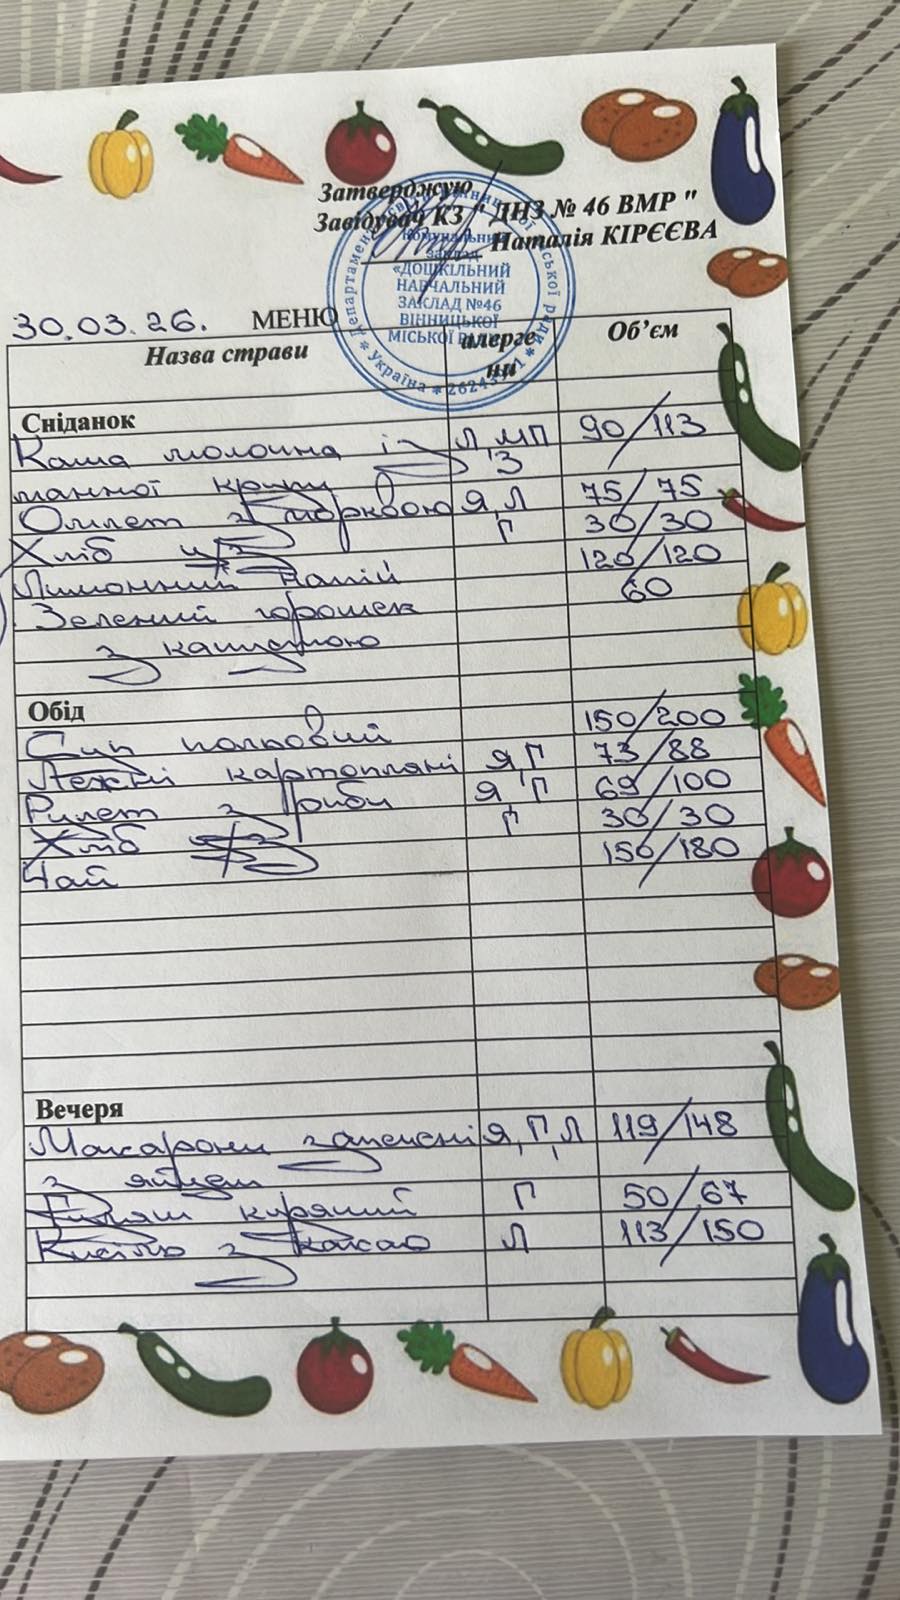 Затверджую
Завідувач КЗ " ДНЗ № 46 ВМР "
Наталія КІРЄЄВА
комунальний
заклад
«ДОШКІЛЬНИЙ
НАВЧАЛЬНИЙ
ЗАКЛАД №46
ВІННИЦЬКОЇ
МІСЬКОЇ РАДИ»
Україна
30.03.26. МЕНЮ
Назва страви алергени Об’єм
Сніданок
Каша молочна із Л МП 90/113
манної крупи З
Омлет з морквою Я,Л 75/75
Хліб ц/з Г 30/30
Лимонний напій 120/120
Зелений горошек 60
з капустою
Обід
Суп польовий 150/200
Лежні картопляні Я,Г 73/88
Рулет з риби Я,Г 69/100
Хліб ц/з Г 30/30
Чай 150/180
Вечеря
Макарони запечені Я,Г,Л 119/148
з яйцем
Гуляш курячий Г 50/67
Кисіль з какао Л 113/150